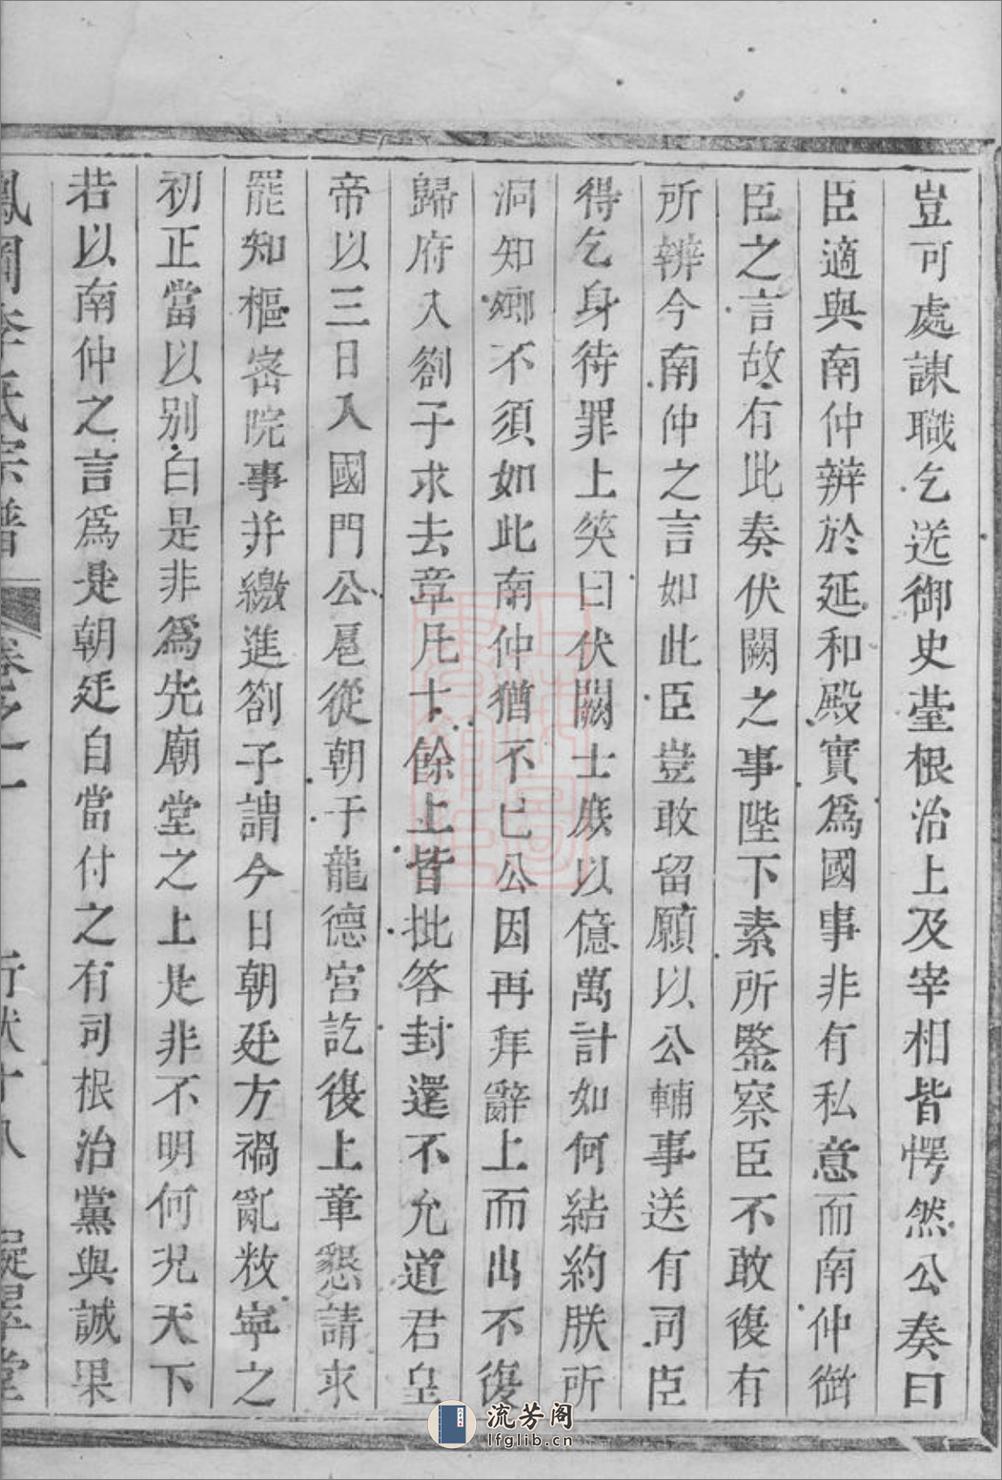 豈可處諫職乞送御史臺根治上及宰相皆愕然公奏曰
臣適與南仲辨於延和殿實爲國事非有私意而南仲銜
臣之言故有此奏伏闕之事陛下素所鑒察臣不敢復有
所辨今南仲之言如此臣豈敢留願以公輔事送有司臣
得乞身待罪上笑曰伏闕士庶以億萬計如何結約朕所
洞知卿不須如此南仲猶不已公因再拜辭上而出不復
歸府入劄子求去章凡十餘上皆批答封還不允道君皇
帝以三日入國門公扈從朝于龍德宮訖復上章懇請求
罷知樞密院事并繳進劄子謂今日朝廷方禍亂敉寧之
初正當以别白是非爲先廟堂之上是非不明何况天下
若以南仲之言爲是朝廷自當付之有司根治黨與誠果
鳳岡李氏宗譜 卷之一 行狀十八
流芳阁
lfglib.cn